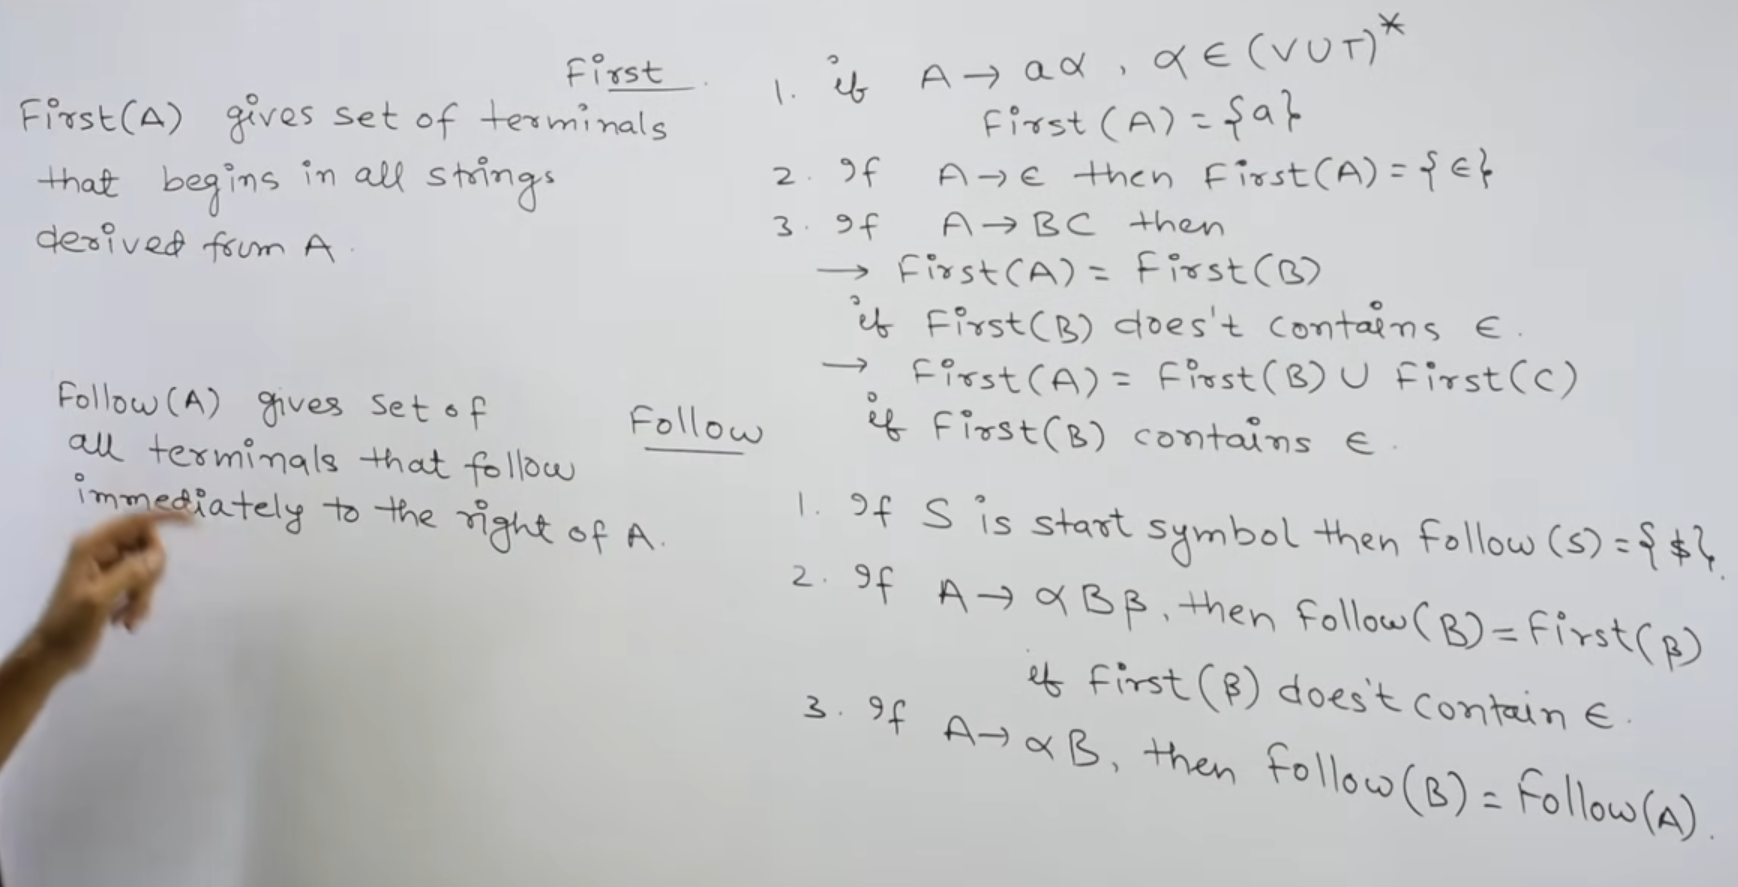 First
First(A) gives set of terminals
that begins in all strings
derived from A.
1. if A → aα, α ∈ (V∪T)*
First(A) = {a}
2. If A → ϵ then First(A) = {ϵ}
3. If A → BC then
→ First(A) = First(B)
if First(B) does't contains ϵ.
→ First(A) = First(B) ∪ First(C)
if First(B) contains ϵ.
Follow
Follow(A) gives set of
all terminals that follow
immediately to the right of A.
1. If S is start symbol then Follow(S) = {$}.
2. If A → αBβ, then Follow(B) = First(β)
if First(β) does't contain ϵ.
3. If A → αB, then Follow(B) = Follow(A).